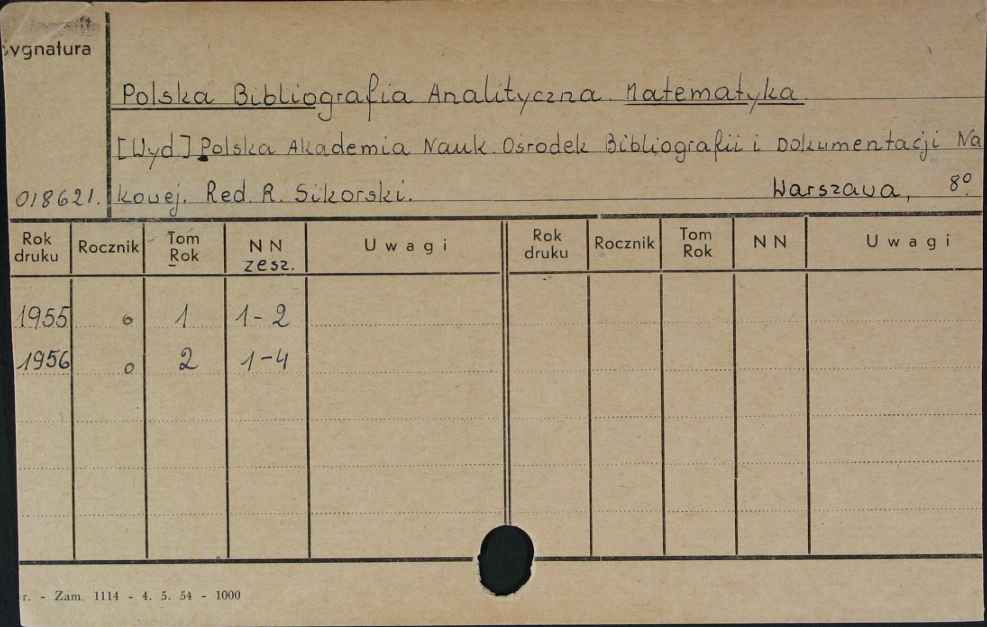 Sygnatura
Polska Bibliografia Analityczna. Matematyka.
[Wyd.] Polska Akademia Nauk. Ośrodek Bibliografii i Dokumentacji Na
018621. kowej. Red. R. Sikorski. Warszawa, 8º.
Rok druku Rocznik Tom Rok NN zesz. Uwagi Rok druku Rocznik Tom Rok NN Uwagi
1955 o 1 1-2
1956 o 2 1-4
r. - Zam. 1114 - 4. 5. 54 - 1000